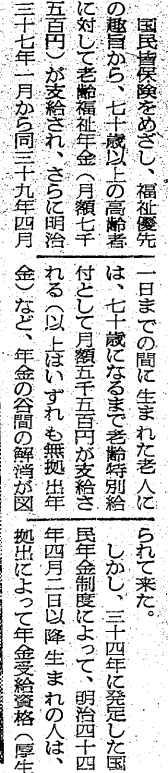 国民皆保険をめざし、福祉優先
の趣旨から、七十歳以上の高齢者
に対して老齢福祉年金（月額七千
五百円）が支給され、さらに明治
三十七年一月から同三十九年四月
一日までの間に生まれた老人に
は、七十歳になるまで老齢特別給
付として月額五千五百円が支給さ
れる（以上はいずれも無拠出年
金）など、年金の谷間の解消が図
られて来た。
しかし、三十四年に発足した国
民年金制度によって、明治四十四
年四月二日以降生まれの人は、
拠出によって年金受給資格（厚生